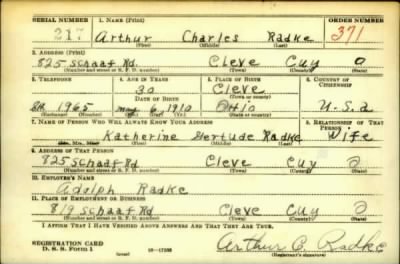 SERIAL NUMBER 1. NAME (Print) ORDER NUMBER
217 Arthur Charles Radke 371
(First) (Middle) (Last)
2. ADDRESS (Print)
825 Schaaf Rd. Cleve Cuy O
(Number and street or R. F. D. number) (Town) (County) (State)
3. TELEPHONE 4. AGE IN YEARS 5. PLACE OF BIRTH 6. COUNTRY OF CITIZENSHIP
30 Cleve
DATE OF BIRTH (Town or county)
1965 May 6, 1910 Ohio U.S.A
(Exchange) (Number) (Mo.) (Day) (Yr.) (State or country)
7. NAME OF PERSON WHO WILL ALWAYS KNOW YOUR ADDRESS 8. RELATIONSHIP OF THAT PERSON
Katherine Gertude Radke Wife
(First) (Middle) (Last)
9. ADDRESS OF THAT PERSON
825 Schaaf Rd Cleve Cuy O
(Number and street or R. F. D. number) (Town) (County) (State)
10. EMPLOYER'S NAME
Adolph Radke
11. PLACE OF EMPLOYMENT OR BUSINESS
819 Schaaf Rd Cleve Cuy O
(Number and street or R. F. D. number) (Town) (County) (State)
I AFFIRM THAT I HAVE VERIFIED ABOVE ANSWERS AND THAT THEY ARE TRUE.
REGISTRATION CARD
D. S. S. FORM 1 (over) Arthur C. Radke
(Registrant's signature)